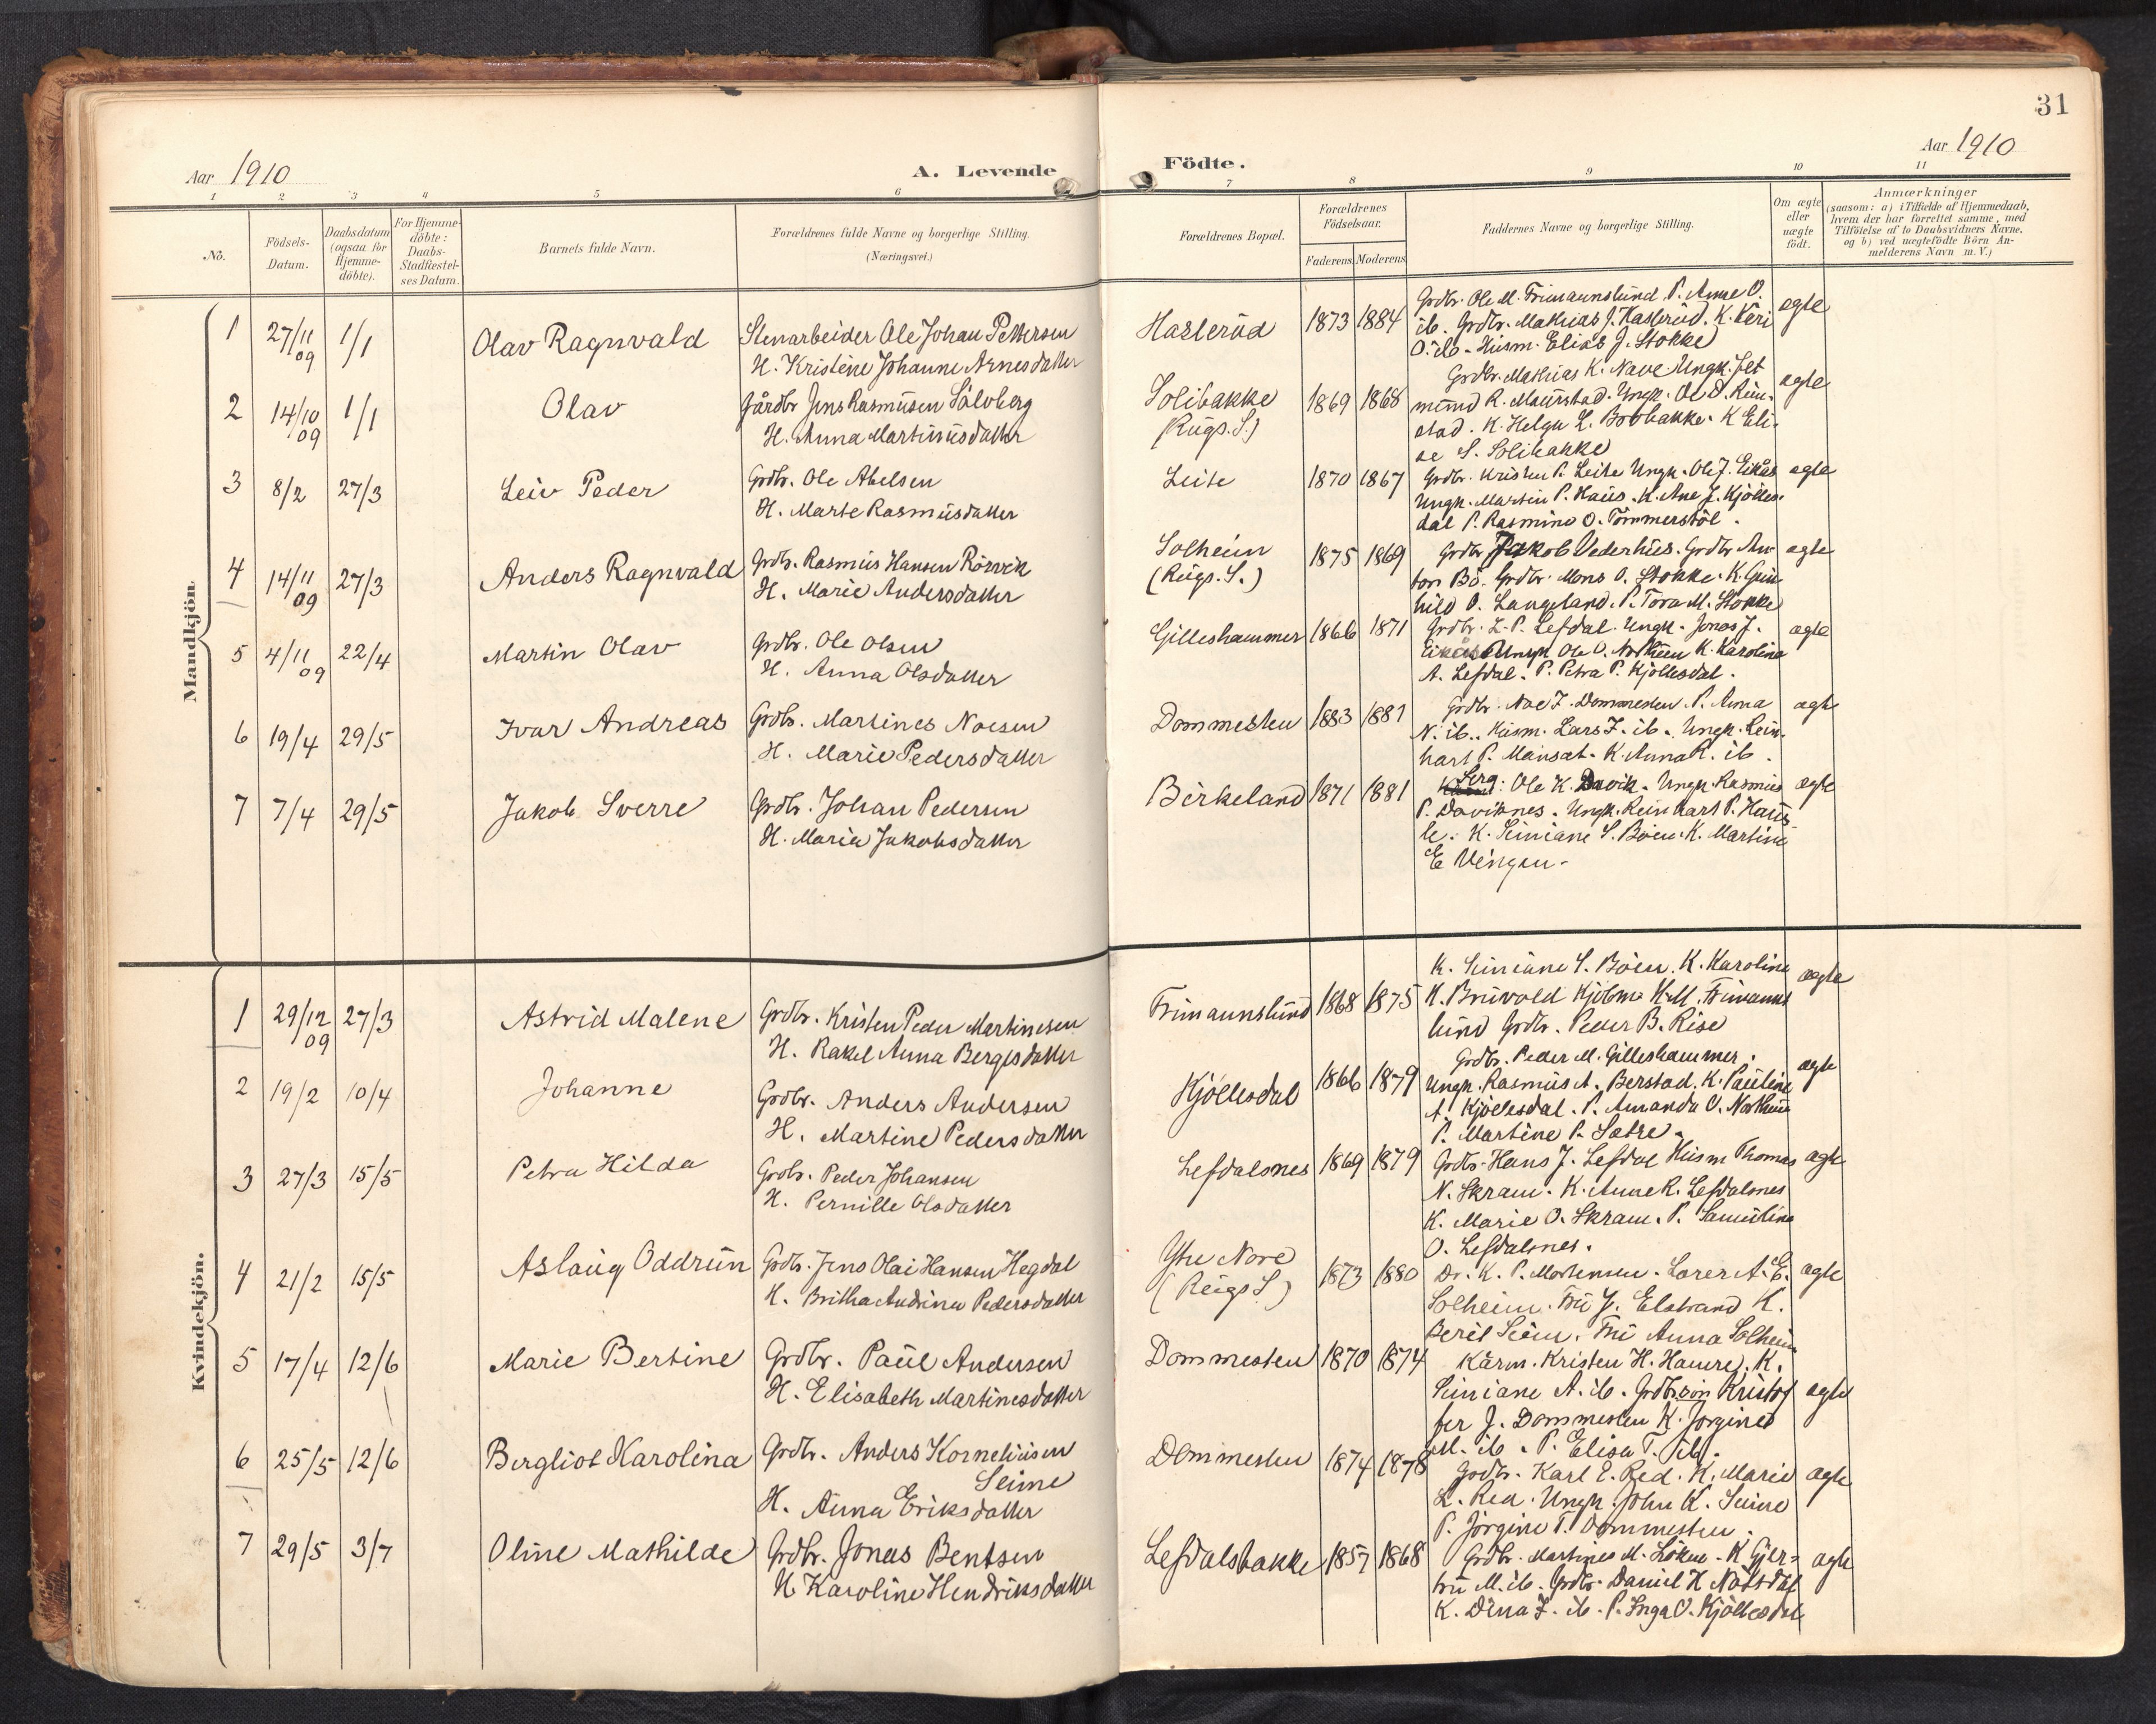 31
Aar 1910
A. Levende
Fødte.
Aar 1910
1 2 3 4 5 6 7 8 9 10 11
No.
Fødsels-
Datum.
Daabsdatum
(ogsaa for
Hjemme-
døbte).
For Hjemme-
døbte:
Daabs-
Stadfæstel-
ses Datum.
Barnets fulde Navn.
Forældrenes fulde Navne og borgerlige Stilling.
(Næringsvei.)
Forældrenes Bopæl.
Forældrenes
Fødselsaar.
Faderens
Moderens
Faddernes Navne og borgerlige Stilling.
Om ægte
eller
uægte
født.
Anmærkninger
(saasom: a) i Tilfælde af Hjemmedaab,
hvem der har forrettet samme, med
Tilføielse af to Daabsvidners Navne.
og b) ved uægtefødte Børn An-
melderens Navn m.V.)
Mandkjøn
1 27/11 09 1/1 Olav Ragnvald
Stenarbeider Ole Johan Pettersen
H. Kristine Johanne Arnesdatter
Haslerud 1873 1884
Grdbr. Ole M. Frimannslund P. Anne O.
ib. Grdbr. Mathias J. Haslerud. K. Kari
O. ib - Husm. Elias J. Stokke
ægte
2 14/10 09 1/1 Olav
Gårdbr Jens Rasmusen Sölvberg
H. Anna Martinusdatter
Solibakke
(Rugs. S.)
1869 1868
Grdbr. Mathias K. Nave Ungk. Jet
mund R. Maurstad. Ungk. Ole D. Rim-
stad. K. Helga L. Bobbakke. K Eli-
se S. Solibakke
ægte
3 8/2 27/3 Leiv Peder
Grdbr. Ole Abelsen
H. Marte Rasmusdatter
Leite 1870 1867
Grdbr. Kristen P. Leite Ungk. Ole J. Eikås
Ungk. Martin P. Haus. K. Ane J. Kjölles-
dal P. Rasmine O. Tömmerstöl.
ægte
4 14/11 09 27/3 Anders Ragnvald
Grdbr. Rasmus Hansen Rörvik
H. Marie Andersdatter
Solheim
(Rugs. S.)
1875 1869
Grdbr Jakob Vederhus. Grdbr An-
ton Bö. Grdbr. Mons O. Stokke. K. Gun-
hild O. Langeland. P. Tora M. Stokke
ægte
5 4/11 09 22/4 Martin Olav
Grdbr. Ole Olsen
H. Anna Olsdatter
Gilleshammer 1866 1871
Grdbr. L. P. Lefdal. Ungk. Jonas J.
Eikås Ungk Ole O. Nortun K. Karolina
A. Lefdal. P. Petra P. Kjöllesdal.
ægte
6 19/4 29/5 Ivar Andreas
Grdbr. Martines Noesen
H. Marie Pedersdatter
Dommesten 1883 1881
Grdbr. Noe I. Dommesten. P. Anna
N. ib. Husm. Lars I. ib. Ungk. Rein-
hart P. Maursæt. K. Anna R. ib.
ægte
7 7/4 29/5 Jakob Sverre
Grdbr. Johan Pedersen
H. Maria Jakobsdatter
Birkeland 1871 1881
Serg: Ole K. Davik. Ungk Rasmus
P. Daviknes. Ungk. Reinhart P. Haus-
le. K. Siniane S. Böen. K. Martine
E Vengen.
ægte
Kvindekjøn.
1 29/12 09 27/3 Astrid Malene
Grdbr. Kristen Peder Martinesen
H. Rakel Anna Bergesdatter
Frimannslund 1868 1875
K. Siniane S. Böen. K. Karoline
K. Bruvold Kjöbm. K.M. Frimanns
lund Grdbr. Peder B. Rise
ægte
2 19/2 10/4 Johanne
Grdbr. Anders Andersen
H. Martine Pedersdatter
Kjöllesdal 1866 1879
Grdbr. Peder M. Gilleshammer.
Ungk. Rasmus A. Berstad. K. Pauline
A. Kjöllesdal. P. Amanda O. Nortun
P. Martine P. Sætre.
ægte
3 27/3 15/5 Petra Hilda
Grdbr. Peder Johansen
H. Pernille Olsdatter
Lefdalsnes 1869 1879
Grdbr. Hans J. Lefdal Husm Thomas
N. Skram. K. Anne R. Lefdalsnes
K. Marie O. Skram. P. Samuline
O. Lefdalsnes.
ægte
4 21/2 15/5 Aslaug Oddrun
Grdbr. Jens Olai Hansen Hegdal
H. Britha Andrina Pedersdatter
Ytre Nore
(Rugs S)
1873 1880
Dr. K. P. Mortensen. Lærer A. E.
Solheim. Fru J. Elstrand K.
Beril Seim. Fru Anna Solheim
ægte
5 17/4 12/6 Marie Bertine
Grdbr. Paul Andersen
H. Elisabeth Martinesdatter
Dommesten 1870 1874
Kårm. Kristen H. Hamre. K.
Siniane A. ib. Grdbr.sön Kristof
fer J. Dommesten K. Jorgine
M. ib. P. Elisa T. ib.
ægte
6 25/5 12/6 Bergliot Karolina
Grdbr. Anders Korneliusen
Seime
H. Anna Eriksdatter
Dommesten 1874 1878
Grdbr. Karl E. Red. K. Marie
L. Red. Ungk. John K. Seime
P. Jörgine T. Dommesten.
ægte
7 29/5 3/7 Oline Mathilde
Grdbr. Jonas Bentsen
H Karoline Hendriksdatter
Lefdalsbakke 1857 1868
Grdbr. Martines M. Löken. K Gjer-
tru M. ib. Grdbr. Daniel H Nötsdal
K. Dina I. ib. P. Inga O. Kjöllesdal
ægte